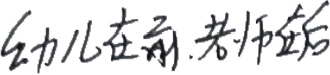 幼儿在前.老师在后